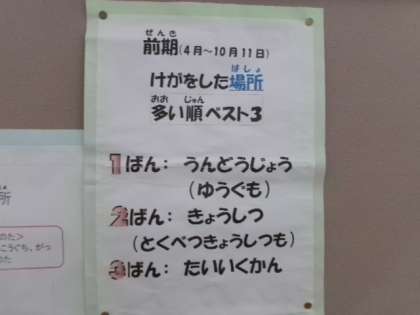 ぜんき
前期(4月～10月11日)
ばしょ
けがをした場所
おお じゅん
多い順ベスト3
1ばん: うんどうじょう
(ゆうぐも)
2ばん: きょうしつ
(とくべつきょうしつも)
3ばん: たいいくかん
しょ
所
のた＞
こうぐち、がっ
のた